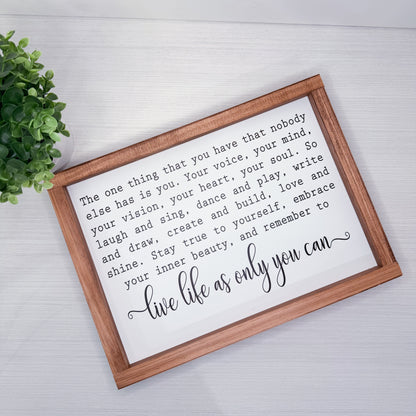 The one thing that you have that nobody
else has is you. Your voice, your mind,
your vision, your heart, your soul. So
laugh and sing, dance and play, write
and draw, create and build, love and
shine. Stay true to yourself, embrace
your inner beauty, and remember to
live life as only you can